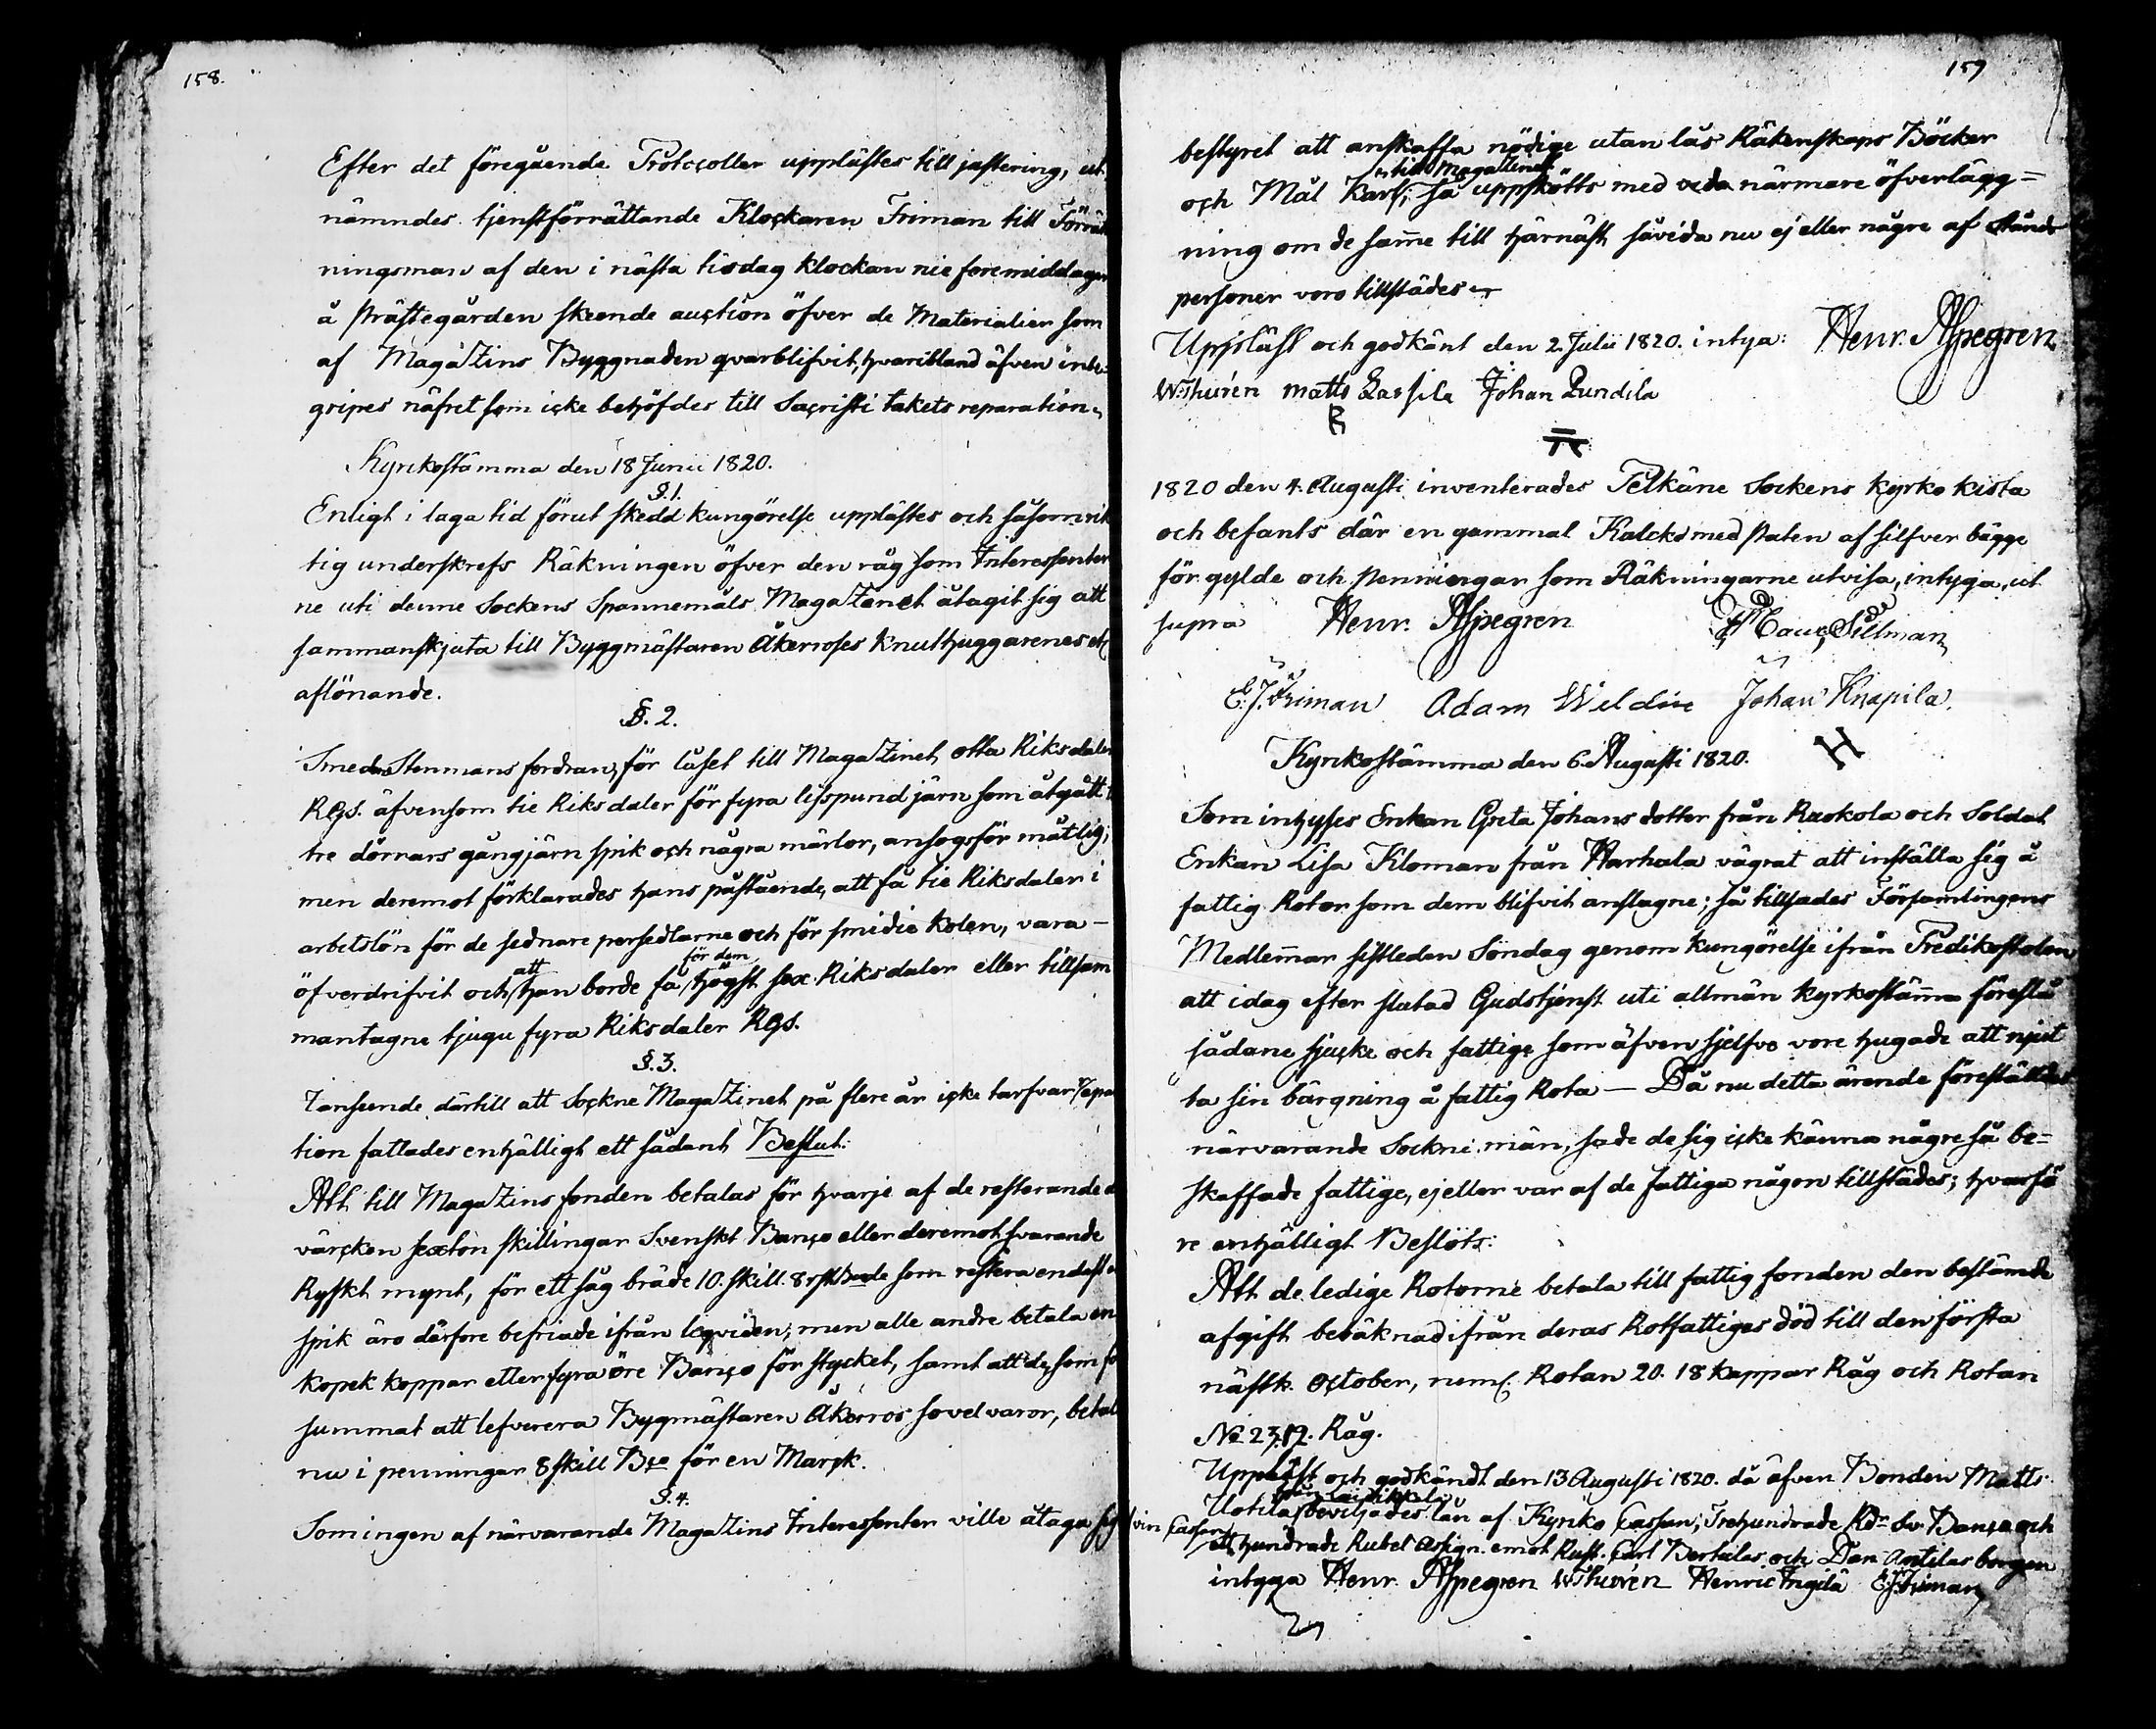 158.
Efter det föregående Protocoller uppläſtes till juſtering, ut-
nämndes tjenſtförrättande Klockaren Friman till Förrätt
ningsman af den i näſta tisdag klockan nie foremiddagen
å Präſtegården skeende auction öfver de Materialier ſom
af Magazins Byggnaden qvarblifvit, hvaribland äfven inbe-
gripes näfret ſom icke behöfdes till Sacriſti takets reparation.
Kyrckoſtämma den 18 Junii 1820.
§.1.
Enligt i laga tid förut ſkedd kungörelſe uppläſtes och ſåſom rik
tig underſkrefs Räkningen öfver den råg ſom Intereſſenter
ne uti denne Sockens Spannemåls Magazinet åtagit ſig att
ſammanſkjuta till Byggmäſtaren Åkerroſes Knuthuggarenes etc
aflönande.
§. 2.
Smeden Stenmans fordran, för låſet till Magazinet, otta Riksdaler
RGs. äfvenſom tie Riksdaler för fyra liſspund järn ſom åtgått t
tre dörrars gångjärn ſpik och några märlor, anſogs för måtlig;
men deremot förklarades hans påſtående, att få tie Riksdaler i
arbetslön för de ſednare perſedlarne och för ſmidie kolen, vara -
öfverdrifvit och att han borde få för dem högſt ſex Riksdaler eller tillſam
mantagne tjugu fyra Riksdaler RGs.
§.3.
I anſeende därtill att Sockne Magazinet på flere år icke tarfvar repara
tion fattades enhälligt ett ſådant Beſlut:
Att till Magazins fonden betalas för hvarje af de reſterande d
värcken ſexton ſkillingar Svenſkt Banco eller deremot ſvarande
Ryſkt mynt, för ett ſåg bräde 10. ſkill. 8 rſt. de ſom reſtera endaſt
ſpik äro därfore befriade ifrån leqviden; men alle andre betala en
kopek koppar eller fyra öre Banco för ſtycket, ſamt att de, ſom för
ſummat att lefverera Bygmäſtaren Åkerros ſovelvaror, betal
nu i penningar 8 ſkill Bco för en Marck.
§.4.
Som ingen af närvarande Magazins Intereſſenter ville åtaga ſig
159
beſtyret att anſkaffa nödige utanlås Räkenſkaps Böcker
och Mål Karl till Magazinet; ſå uppſkötts med närmare öfverlägg=
ning om de ſam̅e till härnäſt, ſåvida nu ej eller någre af Stånds
perſoner voro tillſtädes.
Uppläſt och godkänt den 2. Julii 1820. intya: Henr. Aſpegren
W. Thurén Matts Laſſila Johan Lundila
1820 den 4. Auguſti inventerades Pelkäne Sockens kyrko kiſta
och befants där en gammal Kalck med Paten af ſilfver bägge
förgylde och penningar ſom Räkningarne utviſa, intyga, ut
ſupra Henr. Aſpegren Sillman
E. J. Friman Adam Weldin Johan Knapila.
Kyrkoſtämma den 6. Auguſti 1820.
Som intyſes Enkan Greta Johans dotter från Ruokola och Soldat
Enkan Liſa Kloman från Harhala vägrat att inſtälla ſig å
fattig Rotor ſom dem blifvit anſlagne; ſå tillſades Förſamlingens
Medlem̅ar ſiſtleden Söndag genom kungörelſe ifrån Predikoſtolen
att idag efter ſlutad Gudstjenſt uti allmän kyrkoſtäm̅a föreſlå
ſådane ſjucke och fattige ſom äfven ſjelfve vore hugade att njut
ta ſin bärgning å fattig Rota — Då nu detta ärende föreſtältes
närvarande Sockne män, ſade de ſig icke känna någre ſå be=
skaffade fattige, ej eller var af de fattiga någon tillſtädes; hvarfö
re enhälligt Beſlöts:
Att de ledige Rotorne betala till fattig fonden den beſtämde
afgift beräknad ifrån deras Rotfattiges död till den förſta
näſtk. October, neml. Rotan 20. 18 kappar Råg och Rotan
No 23. 12. Råg.
Uppläſt och godkändt den 13 Auguſti 1820. då äfven Bonden Matts
Uotila beviljades lån af Kyrko Caſſan; Trehundrade Rdr Sv. Banco och
ett hundrade Rubel Aſsign. emot Ruſt. Carl Bertilas och Dan. Antilas borgen
intyga Henr. Aſpegren W. Thurén Henric Ingilä E. J. Friman